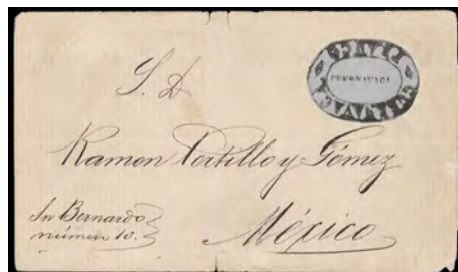 CUERNAVACA
S. D.
Ramon Portillo y Gómez
Sn Bernardo
número 10.
México